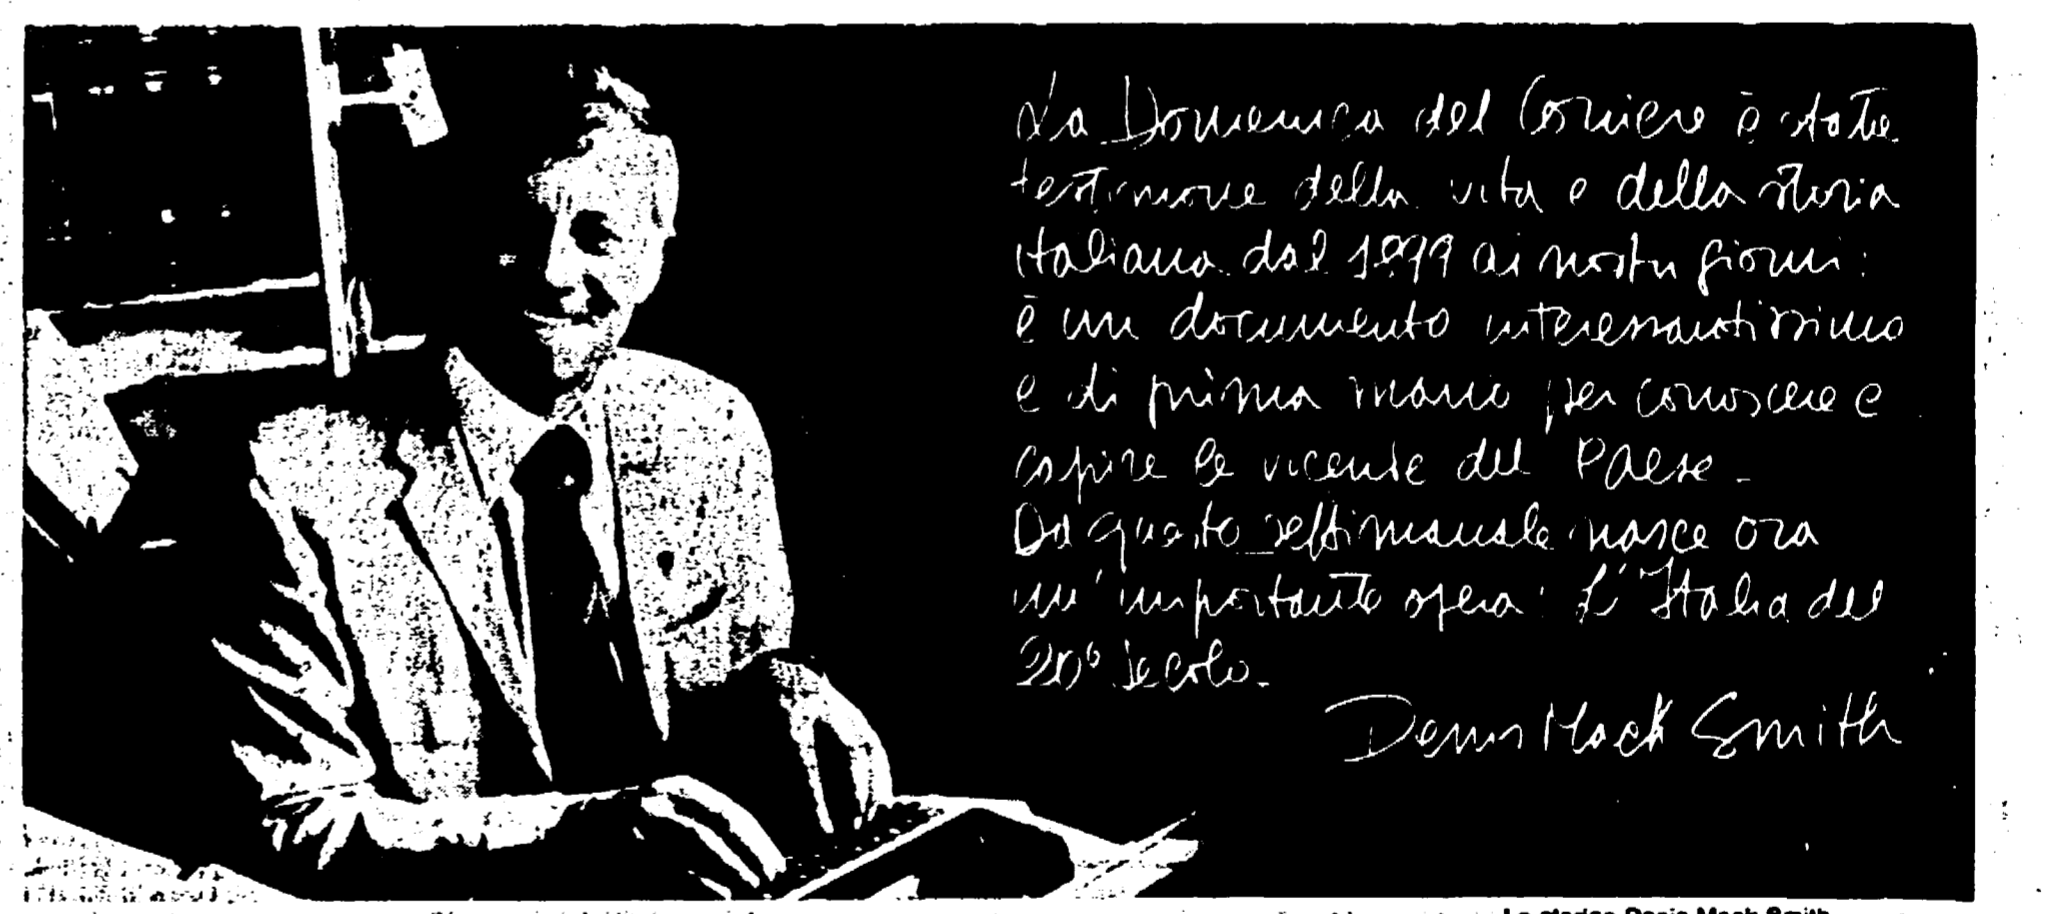 La Domenica del Corriere è stata
testimone della vita e della storia
italiana dal 1899 ai nostri giorni:
è un documento interessantissimo
e di prima mano per conoscere e
capire le vicende del Paese.
Da questo settimanale nasce ora
un'importante opera: L'Italia del
20º secolo.
Denis Mack Smith
Lo storico Denis Mack Smith